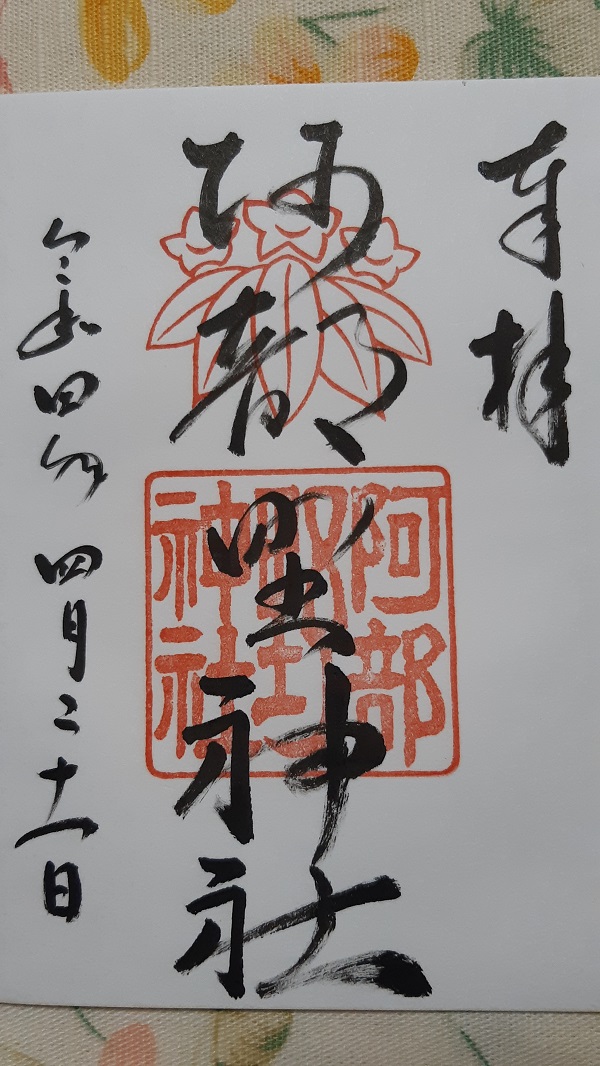 奉拝
阿部野神社
令和四年 四月二十一日
阿部
野
神社